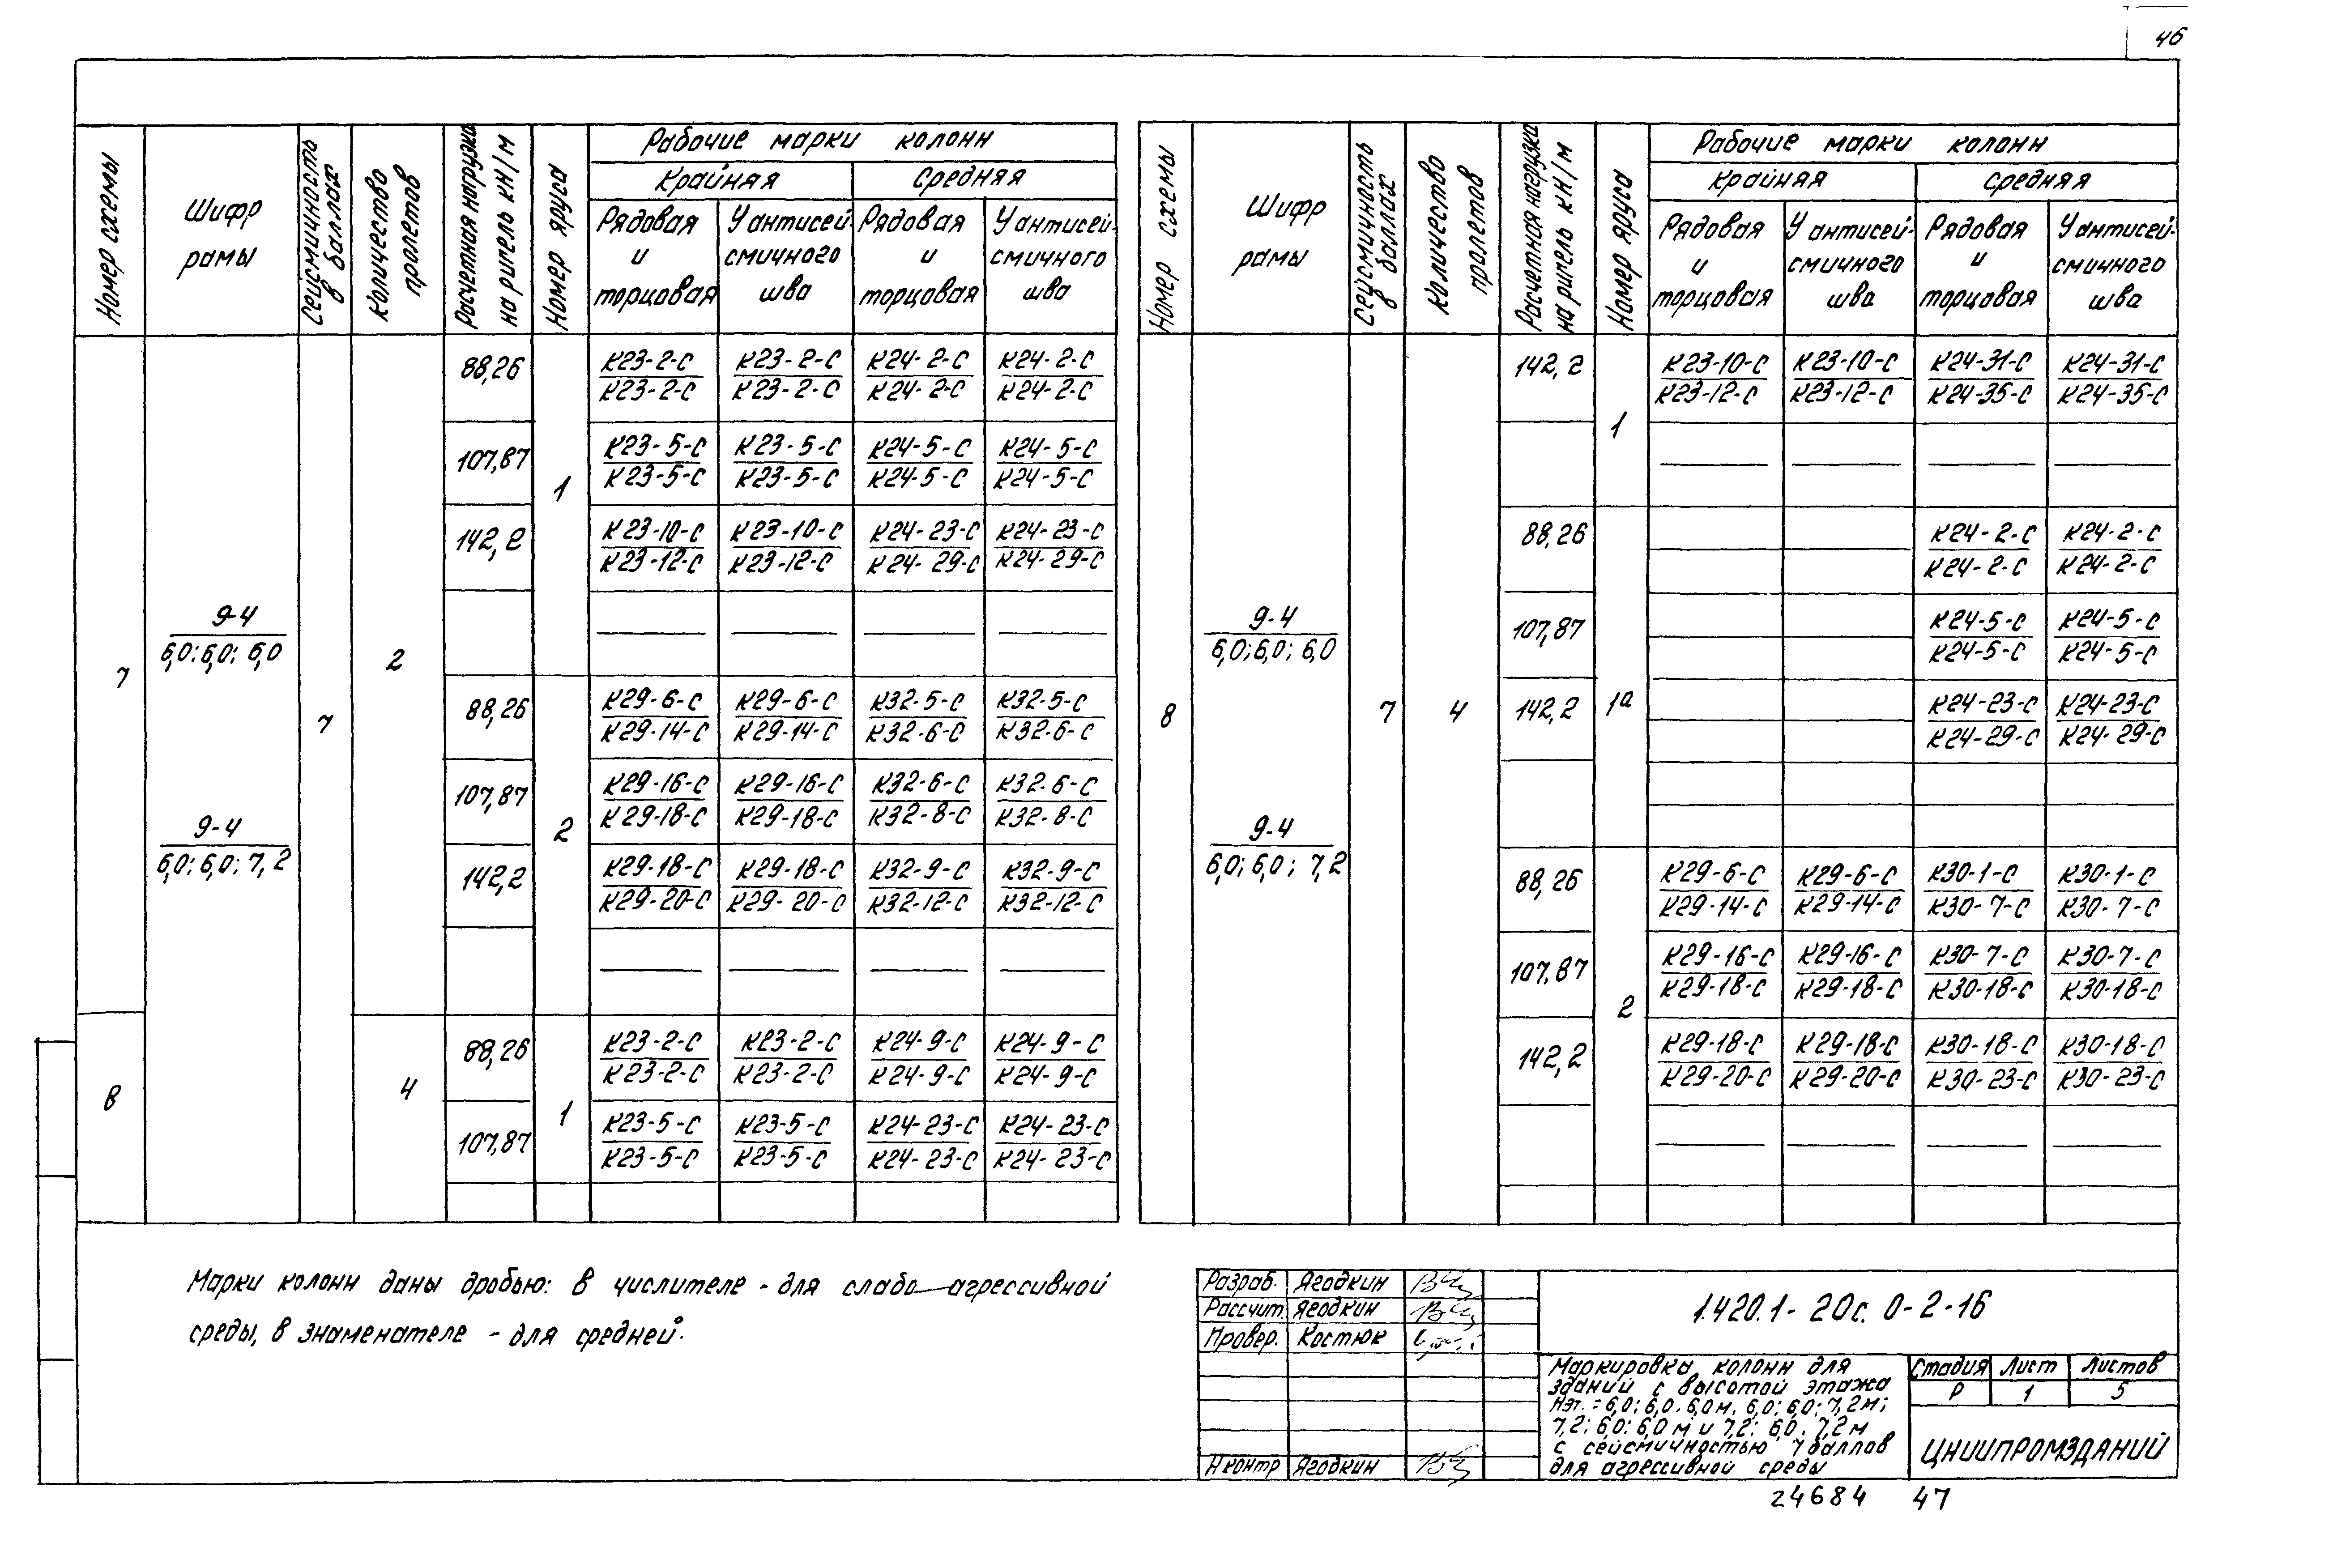 46
Номер схемы
Шифр рамы
Сейсмичность в баллах
Количество пролетов
Расчетная нагрузка на ригель кН/м
Номер яруса
Рабочие марки колонн
Крайняя Средняя
Рядовая и торцовая
У антисейсмичного шва
Рядовая и торцовая
У антисейсмичного шва
7
9-4
6,0; 6,0; 6,0
9-4
6,0; 6,0; 7,2
7
2
1
88,26 К23-2-С К23-2-С К24-2-С К24-2-С
К23-2-С К23-2-С К24-2-С К24-2-С
107,87 К23-5-С К23-5-С К24-5-С К24-5-С
К23-5-С К23-5-С К24-5-С К24-5-С
142,2 К23-10-С К23-10-С К24-23-С К24-23-С
К23-12-С К23-12-С К24-29-С К24-29-С
2
88,26 К29-6-С К29-6-С К32-5-С К32-5-С
К29-14-С К29-14-С К32-6-С К32-6-С
107,87 К29-16-С К29-16-С К32-6-С К32-6-С
К29-18-С К29-18-С К32-8-С К32-8-С
142,2 К29-18-С К29-18-С К32-9-С К32-9-С
К29-20-С К29-20-С К32-12-С К32-12-С
8
4
1
88,26 К23-2-С К23-2-С К24-9-С К24-9-С
К23-2-С К23-2-С К24-9-С К24-9-С
107,87 К23-5-С К23-5-С К24-23-С К24-23-С
К23-5-С К23-5-С К24-23-С К24-23-С
Номер схемы
Шифр рамы
Сейсмичность в баллах
Количество пролетов
Расчетная нагрузка на ригель кН/м
Номер яруса
Рабочие марки колонн
Крайняя Средняя
Рядовая и торцовая
У антисейсмичного шва
Рядовая и торцовая
У антисейсмичного шва
8
9-4
6,0; 6,0; 6,0
9-4
6,0; 6,0; 7,2
7
4
1
142,2 К23-10-С К23-10-С К24-31-С К24-31-С
К23-12-С К23-12-С К24-35-С К24-35-С
1а
88,26 К24-2-С К24-2-С
К24-2-С К24-2-С
107,87 К24-5-С К24-5-С
К24-5-С К24-5-С
142,2 К24-23-С К24-23-С
К24-29-С К24-29-С
2
88,26 К29-6-С К29-6-С К30-1-С К30-1-С
К29-14-С К29-14-С К30-7-С К30-7-С
107,87 К29-16-С К29-16-С К30-7-С К30-7-С
К29-18-С К29-18-С К30-18-С К30-18-С
142,2 К29-18-С К29-18-С К30-18-С К30-18-С
К29-20-С К29-20-С К30-23-С К30-23-С
Марки колонн даны дробью: в числителе - для слабо-агрессивной
среды, в знаменателе - для средней.
Разраб. Ягодкин
Рассчит. Ягодкин
Провер. Костюк
Н контр Ягодкин
1.420.1-20с. 0-2-16
Маркировка колонн для
зданий с высотой этажа
Нэт. = 6,0; 6,0; 6,0 м, 6,0; 6,0; 7,2 м;
7,2; 6,0; 6,0 м и 7,2; 6,0; 7,2 м
с сейсмичностью 7 баллов
для агрессивной среды
Стадия Лист Листов
Р 1 5
ЦНИИПРОМЗДАНИЙ
24684 47